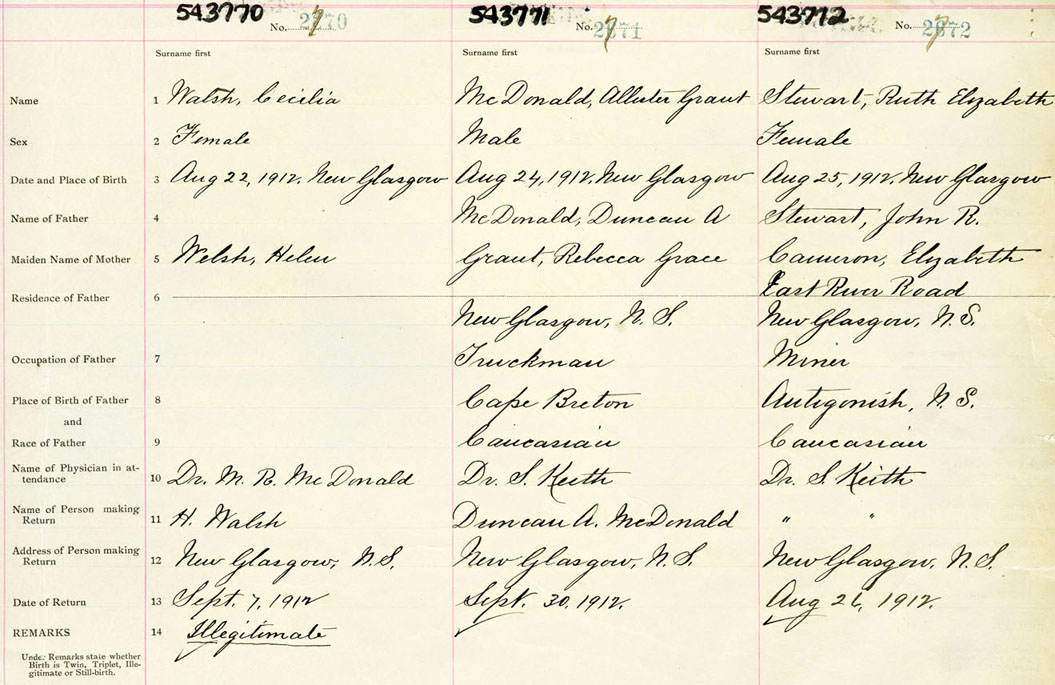 543770 543771 543772
No. 2770 No. 2871 No. 2872
Surname first Surname first Surname first
Name 1 Walsh, Cecilia McDonald, Allister Grant Stewart, Ruth Elizabeth
Sex 2 Female Male Female
Date and Place of Birth 3 Aug 22, 1912. New Glasgow Aug 24, 1912. New Glasgow Aug 25, 1912. New Glasgow
Name of Father 4 McDonald, Duncan A Stewart, John R.
Maiden Name of Mother 5 Welsh, Helen Grant, Rebecca Grace Cameron, Elizabeth
Residence of Father 6 East River Road
New Glasgow, N.S. New Glasgow, N.S.
Occupation of Father 7 Truckman Miner
Place of Birth of Father 8 Cape Breton Antigonish, N.S.
and
Race of Father 9 Caucasian Caucasian
Name of Physician in at-
tendance 10 Dr. M. R. McDonald Dr. S. Keith Dr. S Keith
Name of Person making
Return 11 H. Walsh Duncan A. McDonald " "
Address of Person making
Return 12 New Glasgow, N.S. New Glasgow, N.S. New Glasgow, N.S.
Date of Return 13 Sept. 7, 1912 Sept. 30, 1912. Aug 26, 1912.
REMARKS 14 Illegitimate
Under Remarks state whether
Birth is Twin, Triplet, Ille-
gitimate or Still-birth.